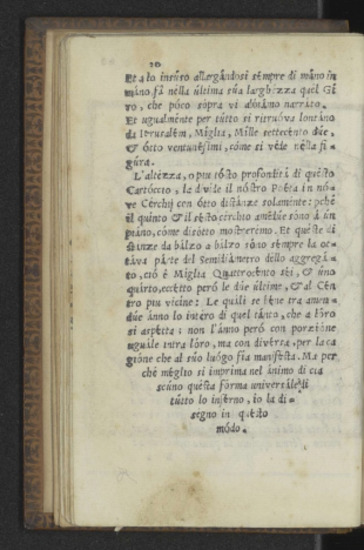 20
Et a lo insúso allargándosi sémpre di máno in
máno fà nélla última súa larghézza quel Gi-
ro, che póco sópra vi abiámo narráto.
Et ugualménte per tútto si ritruóva lontáno
da Ierusalém, Miglia, Mille settecénto dúe,
& ótto ventunésimi, cóme si véde nélla fi-
gúra.
L'altézza, o piu tósto profondità di quésto
Cartóccio, la divíde il nóstro Poéta in nó-
ve Cérchij con ótto distánze solaménte: pché
il quinto & il sésto cérchio amédúe sóno à un
piáno, cóme disótto mostrerémo. Et quéste di
stánze da bálzo a bálzo sóno sémpre la ot-
táva párte del Semidiámetro dello aggregá-
to, ció è Miglia Quattrocénto séi, & úno
quinto, eccétto peró le dúe últime, & al Cén
tro piu vicine: Le quáli se béne tra amen-
dúe ánno lo intéro di quel tánto, che a lóro
si aspétta: non l'ánno peró con porzióne
uguále intra lóro, ma con divérsa, per la ca
gióne che al súo luógo fia manifésta. Ma per
ché méglio si imprima nel ánimo di cia
scúno quésta fórma universále di
tútto lo inférno, io la di-
ségno in quésto
módo.